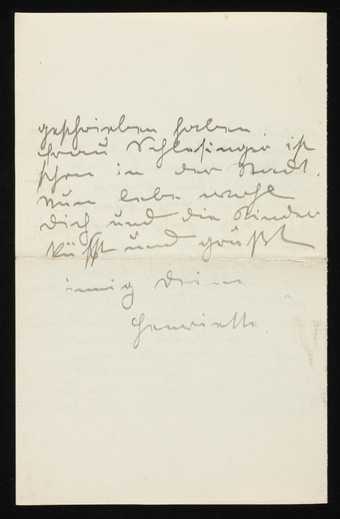 geschrieben haben.
Frau Schlesinger ist
schon in der Stadt.
Nun lebe wohl
Dich und die Kinder
küsst und grüßt
innig Deine
Henriette.